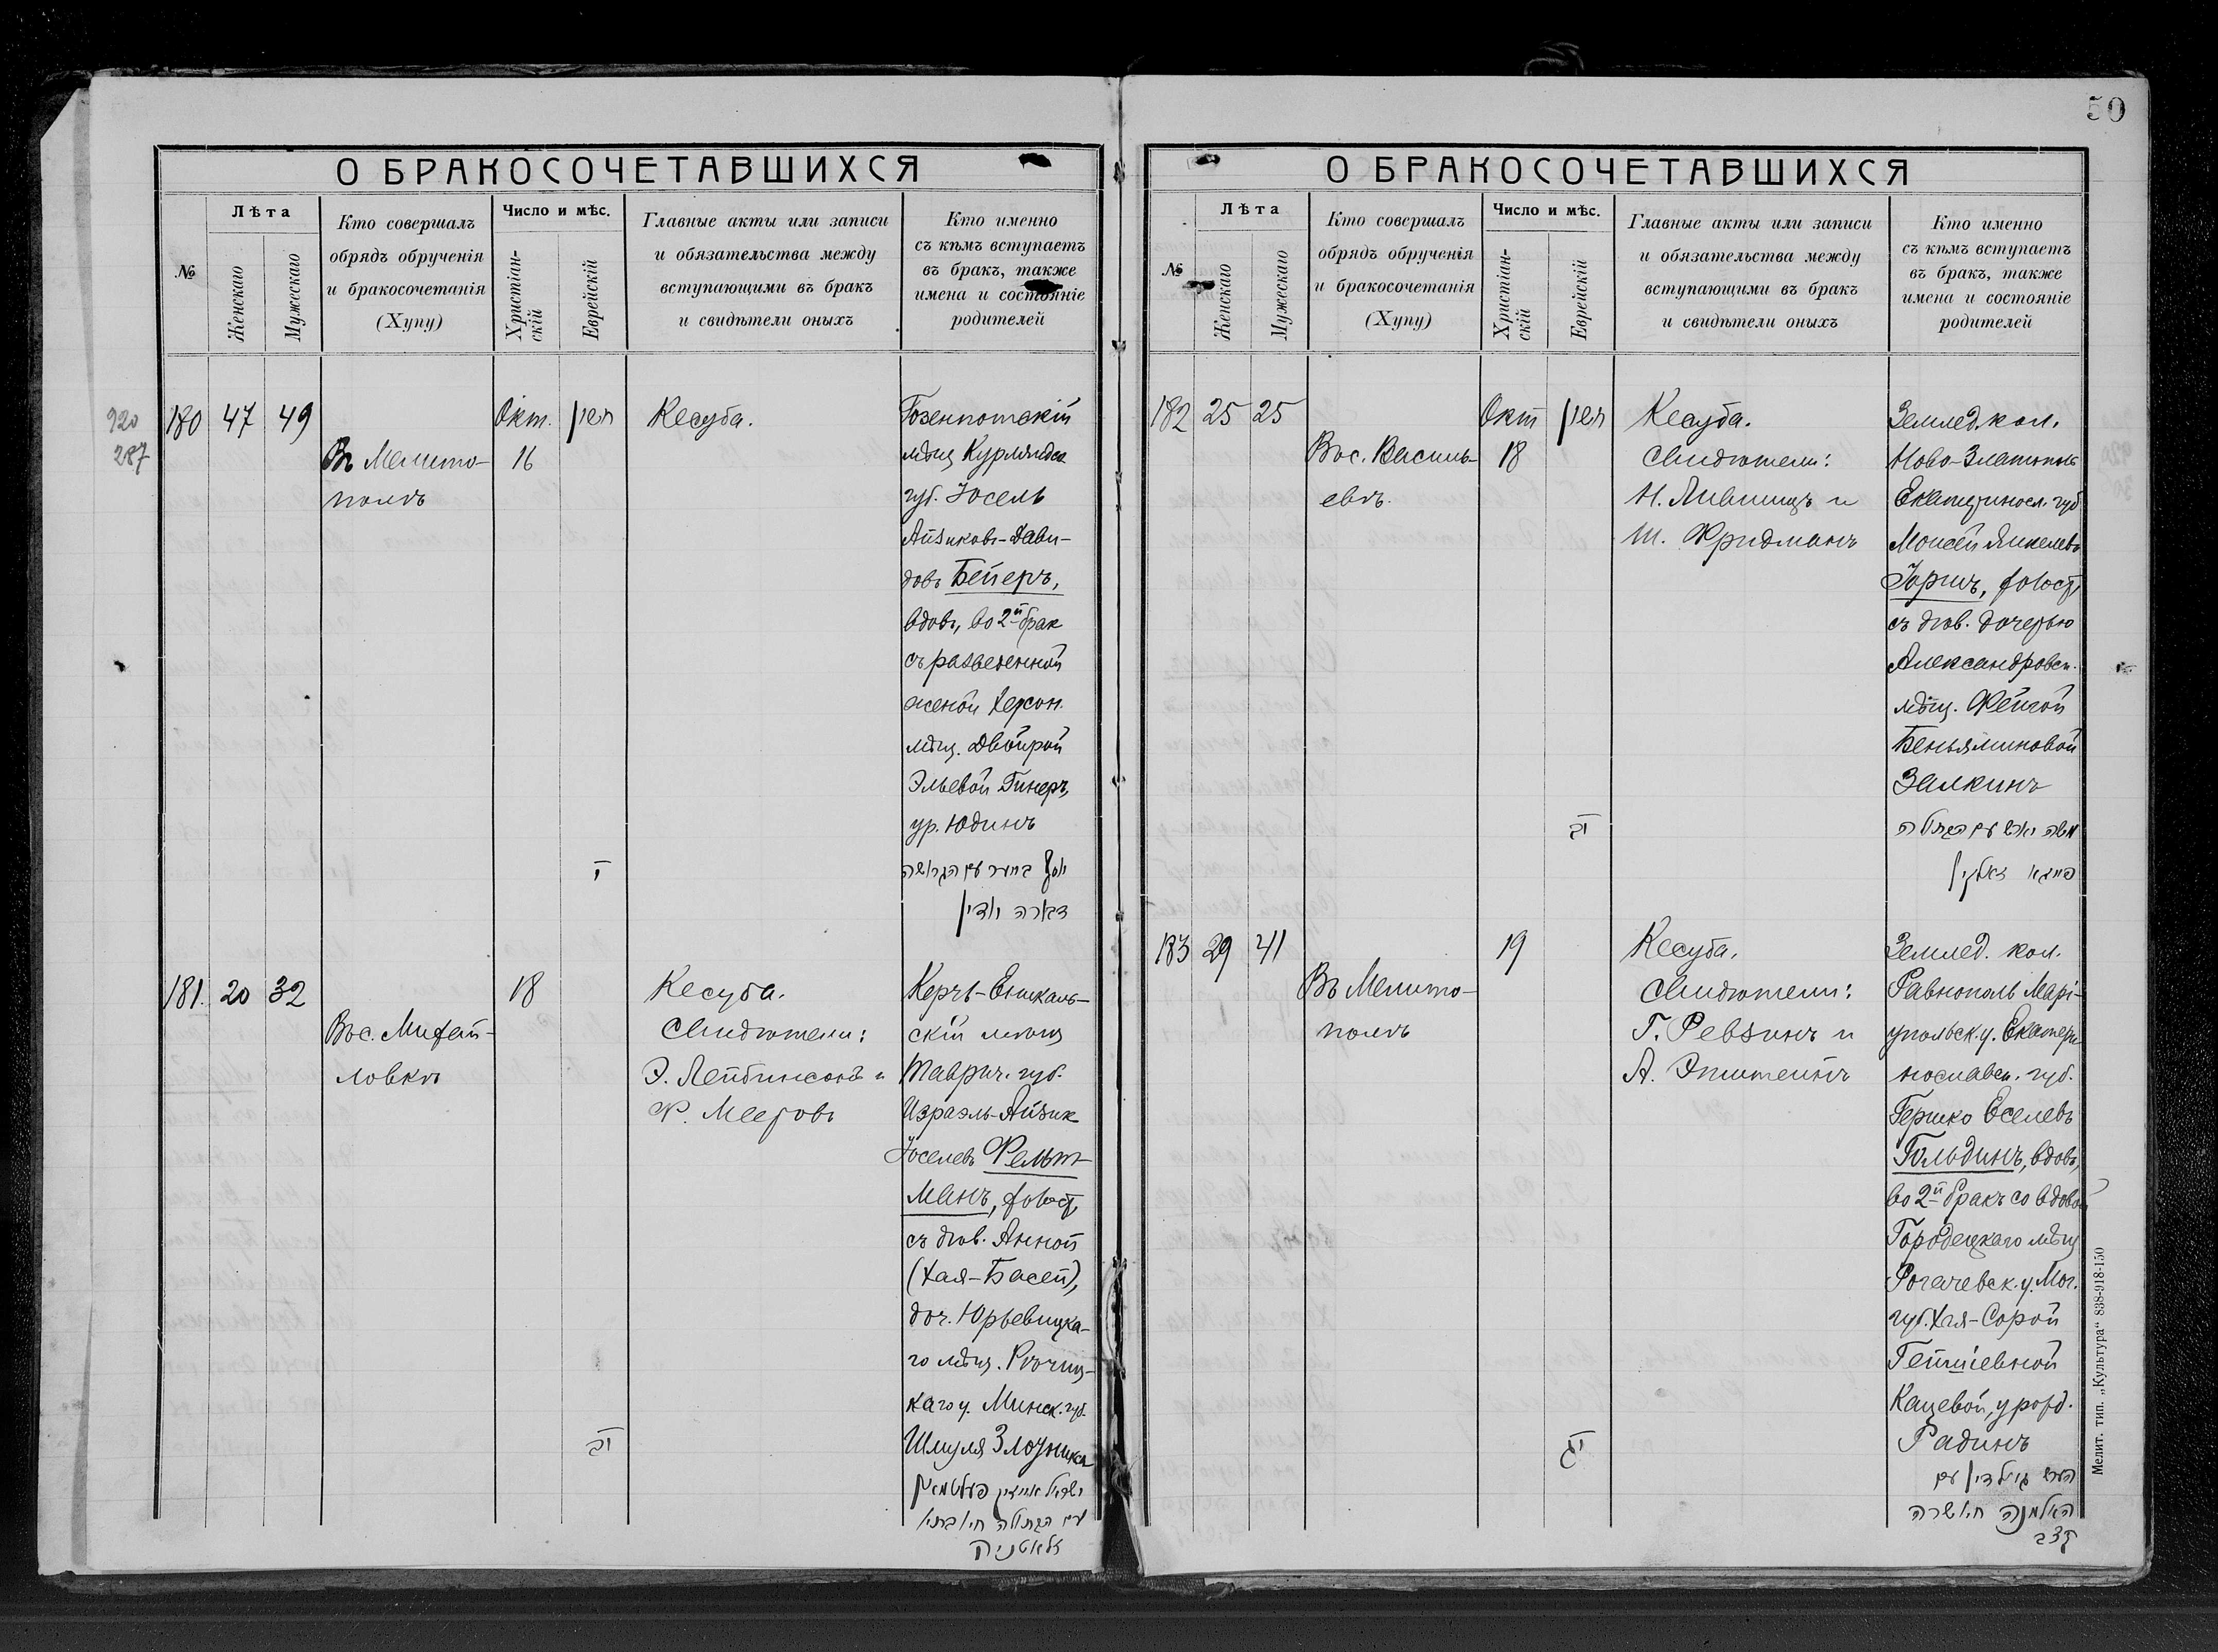 50
О БРАКОСОЧЕТАВШИХСЯ
№
Лѣта
Женскаго
Мужескаго
Кто совершалъ
обрядъ обрученія
и бракосочетанія
(Хупу)
Число и мѣс.
Христіан-
скій
Еврейскій
Главные акты или записи
и обязательства между
вступающими въ бракъ
и свидѣтели оныхъ
Кто именно
съ кѣмъ вступаетъ
въ бракъ, также
имена и состояніе
родителей
920
287
180 47 49
Въ Мелито-
полѣ
Окт.
16
Кесуба.
Газенпотскій
мѣщ Курляндск
губ. Іосель
Айзиковъ-Дави-
довъ Бейеръ,
вдов, во 2й брак
съ разведенной
женой Херсон.
мѣщ. Двойрой
Эльевой Гинеръ,
ур. Юдинъ
י
יוסף בייער עם הגרושה
דבורה יודין
181. 20 32
Въ с. Михай-
ловкѣ
18
Кесуба.
Свидѣтели:
Э. Лейбинсонъ и
Ф. Мееровъ
Керчь-Еникаль-
скій мѣщ
Таврич. губ.
Израэль-Айзик
Іоселевъ Фельт-
манъ, холост,
съ дѣв. Анной
(Хая-Басей),
доч. Юрьевицка-
го мѣщ. Рѣчиц-
каго у. Минск. губ.
Шмуля Злотника
יב
ישראל אייזיק פעלטמאן
עם הבתולה חי' בתי'
זלאטניק
О БРАКОСОЧЕТАВШИХСЯ
№
Лѣта
Женскаго
Мужескаго
Кто совершалъ
обрядъ обрученія
и бракосочетанія
(Хупу)
Число и мѣс.
Христіан-
скій
Еврейскій
Главные акты или записи
и обязательства между
вступающими въ бракъ
и свидѣтели оныхъ
Кто именно
съ кѣмъ вступаетъ
въ бракъ, также
имена и состояніе
родителей
182 25 25
Въ с. Василь-
евкѣ.
Окт
18
Кесуба.
Свидѣтели:
Н. Лившицъ и
Ш. Фридманъ
Землед. кол.
Ново-Златополь
Екатеринося. губ
Моисей Янкелевъ
Юричъ, холост,
съ дѣв. дочерью
Александровск.
мѣщ. Фейгой
Беньяминовой
Залкинъ
יב
משה
עם הבתולה
פייגא זאלקין
183 29 41
Въ Мелито-
полѣ
19
Кесуба.
Свидѣтели:
Г. Ревзинъ и
А. Эпштейнъ
Землед. кол.
Равнополь Марі-
упольск. у. Екатери
нославск. губ.
Гершко Еселевъ
Гольдинъ, вдовъ,
во 2й бракъ со вдовой
Городецкаго мѣщ
Рогачевск. у. Мог.
губ. Хая-Сорой
Кацевой, урожд.
Радинъ
יג
הערש גולדין עם
האלמנה חי' שרה
Мелит. тип. „Культура“ 838-918-150